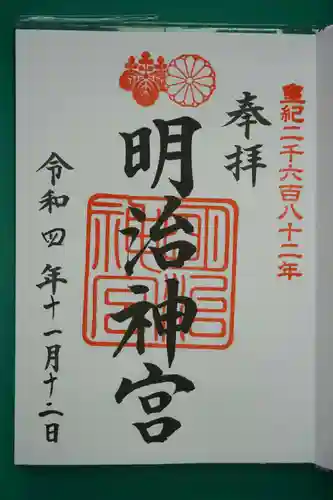 皇紀二千六百八十二年
奉拝
明治神宮
明治神宮
令和四年十一月十二日